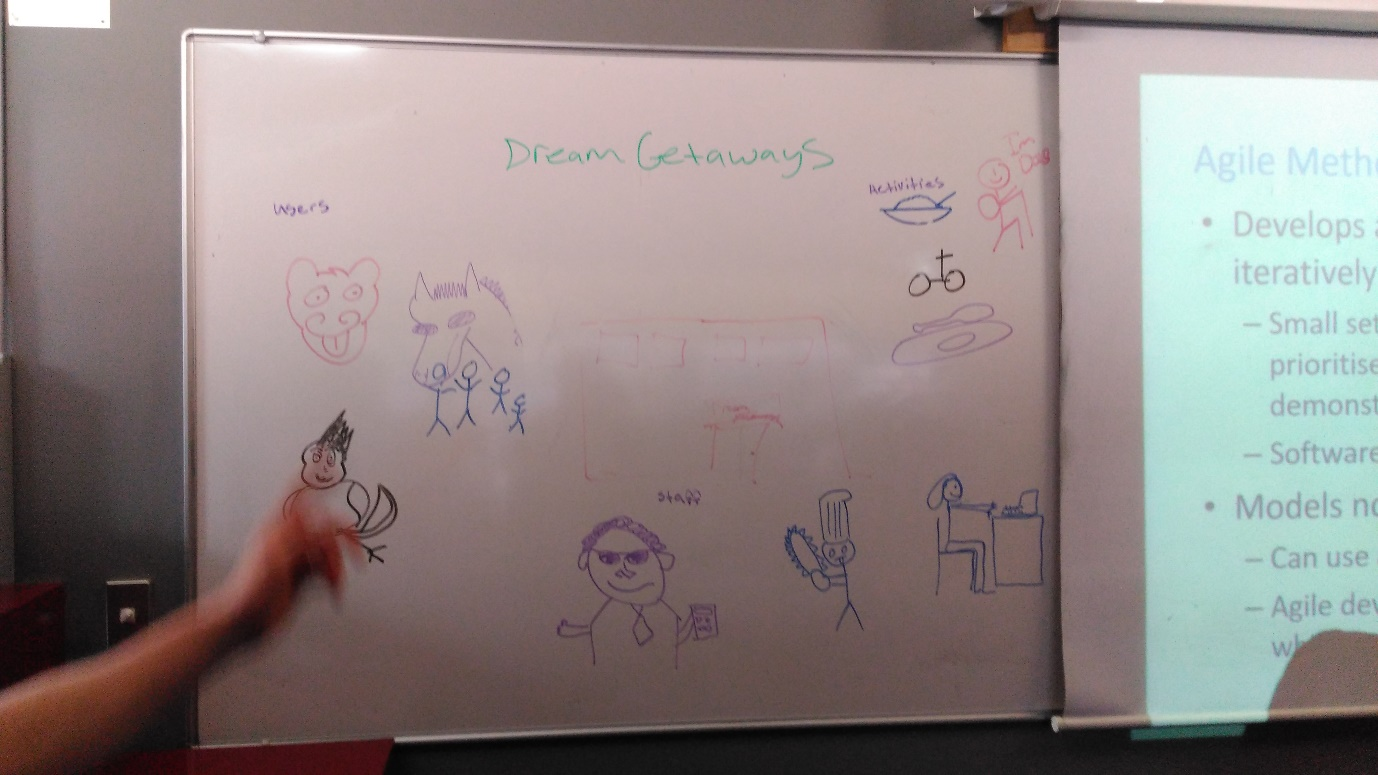 Dream Getaways
Users
Activities
Im
Staff
Agile Meth
• Develops a
iteratively
– Small set
prioritise
demonst
– Software
• Models no
– Can use
– Agile dev
wh